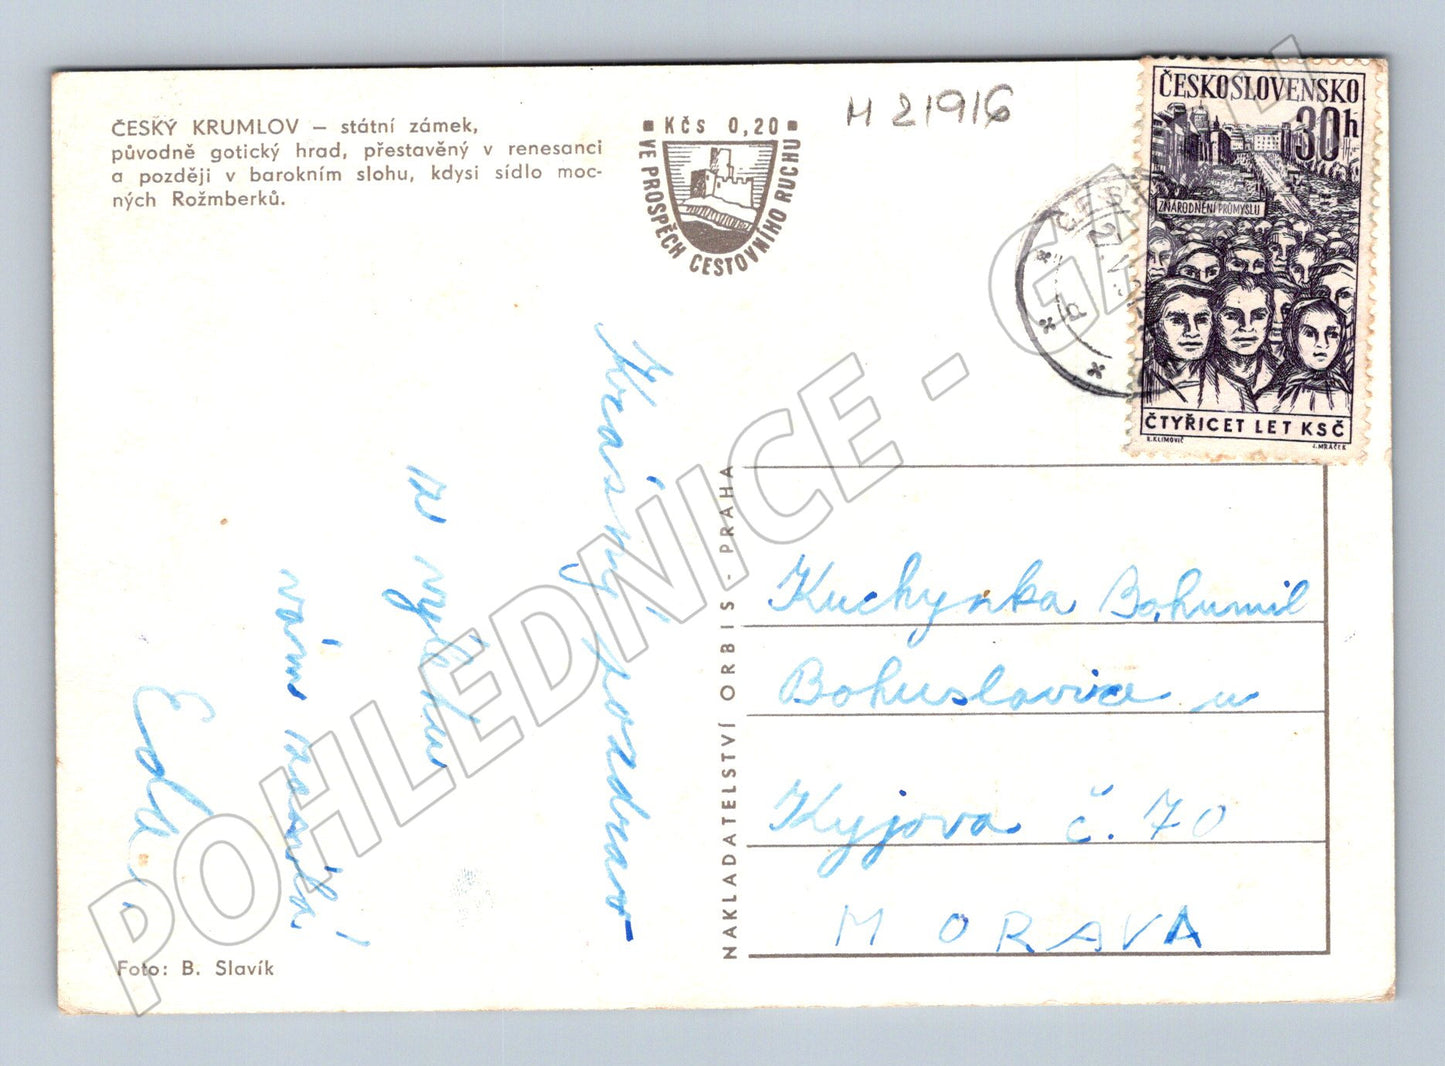 ČESKÝ KRUMLOV – státní zámek,
původně gotický hrad, přestavěný v renesanci
a později v barokním slohu, kdysi sídlo moc-
ných Rožmberků.
KČS 0,20
VE PROSPĚCH CESTOVNÍHO RUCHU
H 21916
ČESKOSLOVENSKO
30h
ZNÁRODNĚNÍ PRŮMYSLU
ČTYŘICET LET KSČ
R. KLIMOVIČ
J. MRÁČEK
Krásný pozdrav
z výletu
vám zasílá
Eda
NAKLADATELSTVÍ ORBIS - PRAHA
Kuchyňka Bohumil
Bohuslavice u
Kyjova č. 70
MORAVA
Foto: B. Slavík
POHLEDNICE -